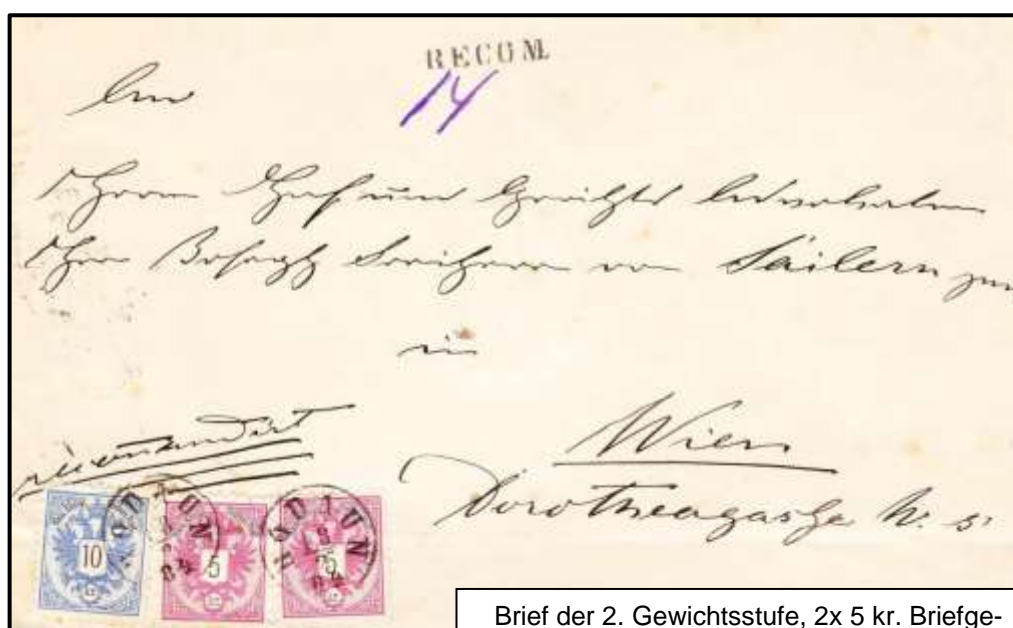 RECOM.
14
An
Herrn Hof und Gerichts Advokaten
Herrn Joseph Freiherrn von Säilern
in
Wien
recomandirt
Dorotheagasse N. 5
RODAUN
RODAUN
84
84
10
5
5
Brief der 2. Gewichtsstufe, 2x 5 kr. Briefge-